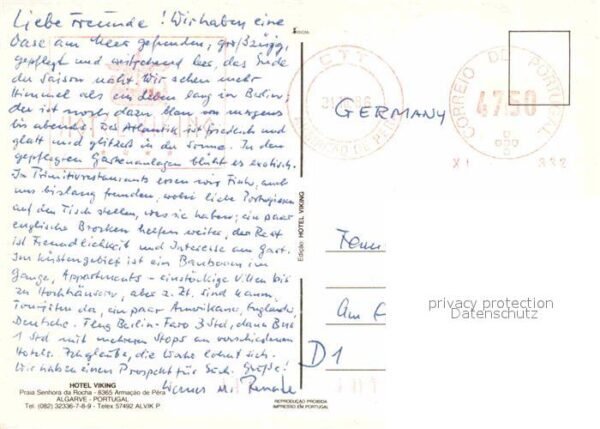 Liebe Freunde! Wir haben eine
Oase am Meer gefunden, großzügig,
gepflegt und weitgehend leer, das Ende
der Saison naht. Wir sehen mehr
Himmel als ein Leben lang in Berlin;
der ist noch dazu blau von morgens
bis abends. Der Atlantik ist friedlich und
glatt und glitzert in der Sonne. In den
gepflegten Gartenanlagen blüht es exotisch.
In Primitivrestaurants essen wir Fische, auch
uns bislang fremden, wobei liebe Portugiesen
auf den Tisch stellen, was sie haben; ein paar
englische Brocken helfen weiter, der Rest
ist Freundlichkeit und Interesse am Gast.
Im Küstengebiet ist ein Bauboom im
Gange, Appartments - einstöckige Villen bis
zu Hochhäusern, aber z. Zt. sind kaum
Touristen da, ein paar Amerikaner, Engländer,
Deutsche. Flug Berlin-Faro 3 Std, dann Bus
1 Std mit mehreren Stops an verschiedenen
Hotels. Ich glaube, die Wahl lohnt sich.
Wir haben einen Prospekt für Euch. Grüße!
Werner u. Renate
HOTEL VIKING
Praia Senhora da Rocha - 8365 Armação de Pêra
ALGARVE - PORTUGAL
Tel. (082) 32336-7-8-9 - Telex 57492 ALVIK P
Edição: HOTEL VIKING
REPRODUÇÃO PROIBIDA
IMPRESSO EM PORTUGAL
CTT
ARMAÇÃO DE PÊRA
CORREIO DE PORTUGAL
47.50
332
GERMANY
Fam
Am
D1
privacy protection
Datenschutz